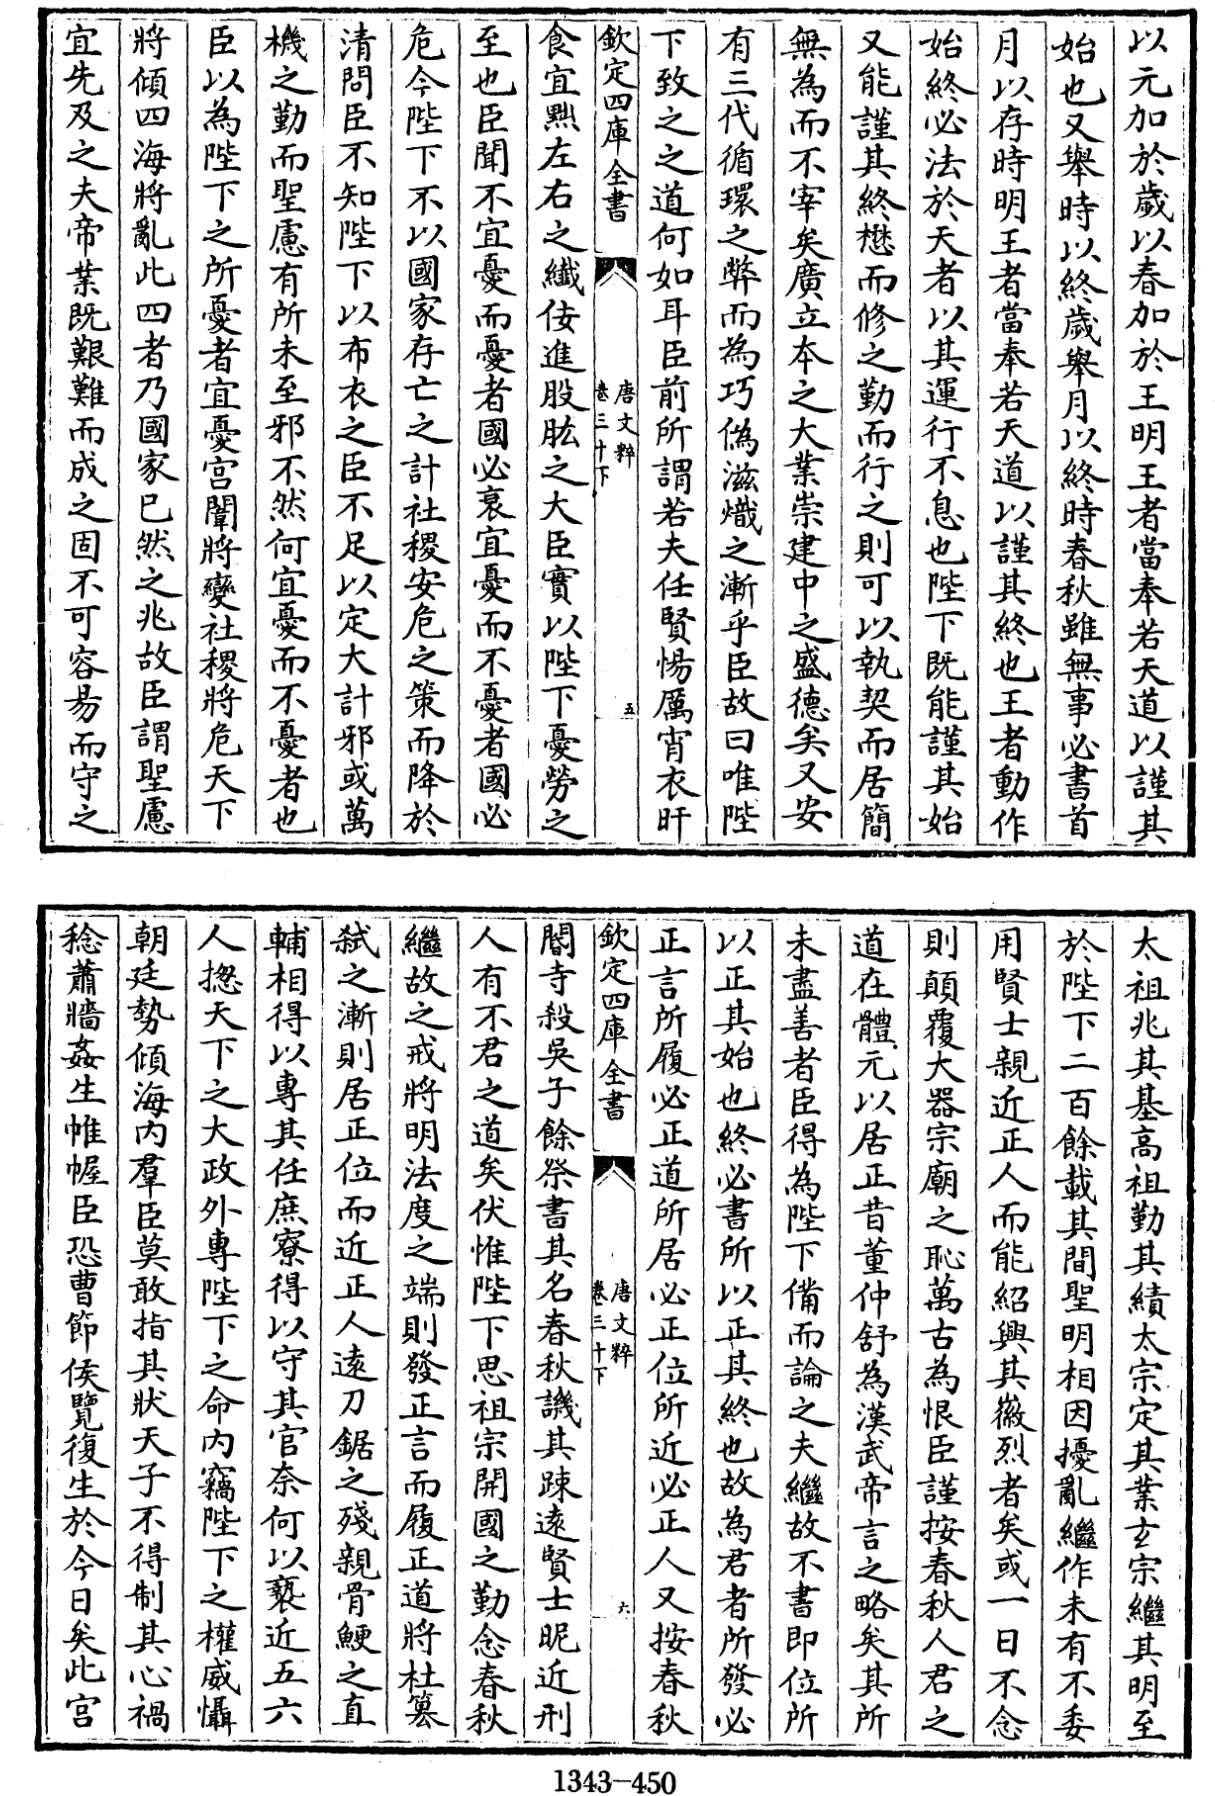 以元加於歲以春加於王明王者當奉若天道以謹其
始也又舉時以終歲舉月以終時春秋雖無事必書首
月以存時明王者當奉若天道以謹其終也王者動作
始終必法於天者以其運行不息也陛下既能謹其始
又能謹其終懋而修之勤而行之則可以執契而居簡
無為而不宰矣廣立本之大業崇建中之盛德矣又安
有三代循環之弊而為巧偽滋熾之漸乎臣故曰唯陛
下致之之道何如耳臣前所謂若夫任賢惕厲宵衣旰
欽定四庫全書
唐文粹
卷三十下
五
食宜黜左右之纖佞進股肱之大臣實以陛下憂勞之
至也臣聞不宜憂而憂者國必衰宜憂而不憂者國必
危今陛下不以國家存亡之計社稷安危之策而降於
清問臣不知陛下以布衣之臣不足以定大計邪或萬
機之勤而聖慮有所未至邪不然何宜憂而不憂者也
臣以為陛下之所憂者宜憂宮闈將變社稷將危天下
將傾四海將亂此四者乃國家已然之兆故臣謂聖慮
宜先及之夫帝業既艱難而成之固不可容易而守之
太祖兆其基高祖勤其績太宗定其業玄宗繼其明至
於陛下二百餘載其間聖明相因擾亂繼作未有不委
用賢士親近正人而能紹興其徽烈者矣或一日不念
則顛覆大器宗廟之恥萬古為恨臣謹按春秋人君之
道在體元以居正昔董仲舒為漢武帝言之略矣其所
未盡善者臣得為陛下備而論之夫繼故不書即位所
以正其始也終必書所以正其終也故為君者所發必
正言所履必正道所居必正位所近必正人又按春秋
欽定四庫全書
唐文粹
卷三十下
六
閽寺殺吳子餘祭書其名春秋譏其踈遠賢士昵近刑
人有不君之道矣伏惟陛下思祖宗開國之勤念春秋
繼故之戒將明法度之端則發正言而履正道將杜篡
弒之漸則居正位而近正人遠刀鋸之殘親骨鯁之直
輔相得以專其任庶寮得以守其官奈何以褻近五六
人揔天下之大政外專陛下之命內竊陛下之權威懾
朝廷勢傾海內羣臣莫敢指其狀天子不得制其心禍
稔蕭牆姦生帷幄臣恐曹節侯覽復生於今日矣此宮
1343-450